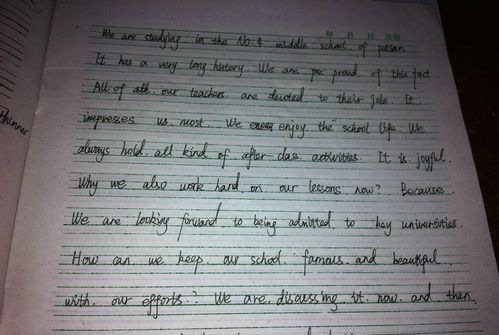 年 月 日 星期
We are studying in the No.4 middle school of putian
It has a very long history. We are proud of this fact
All of our teachers are devoted to their jobs. It
impresses us most We enjoy the school life. We
always hold all kind of after-class activities. It is joyful.
Why we also work hard on our lessons now? Because
We are looking forward to being admitted to key universities.
How can we keep our school famous and beautiful
with our efforts? We are discussing it now and then
thinner